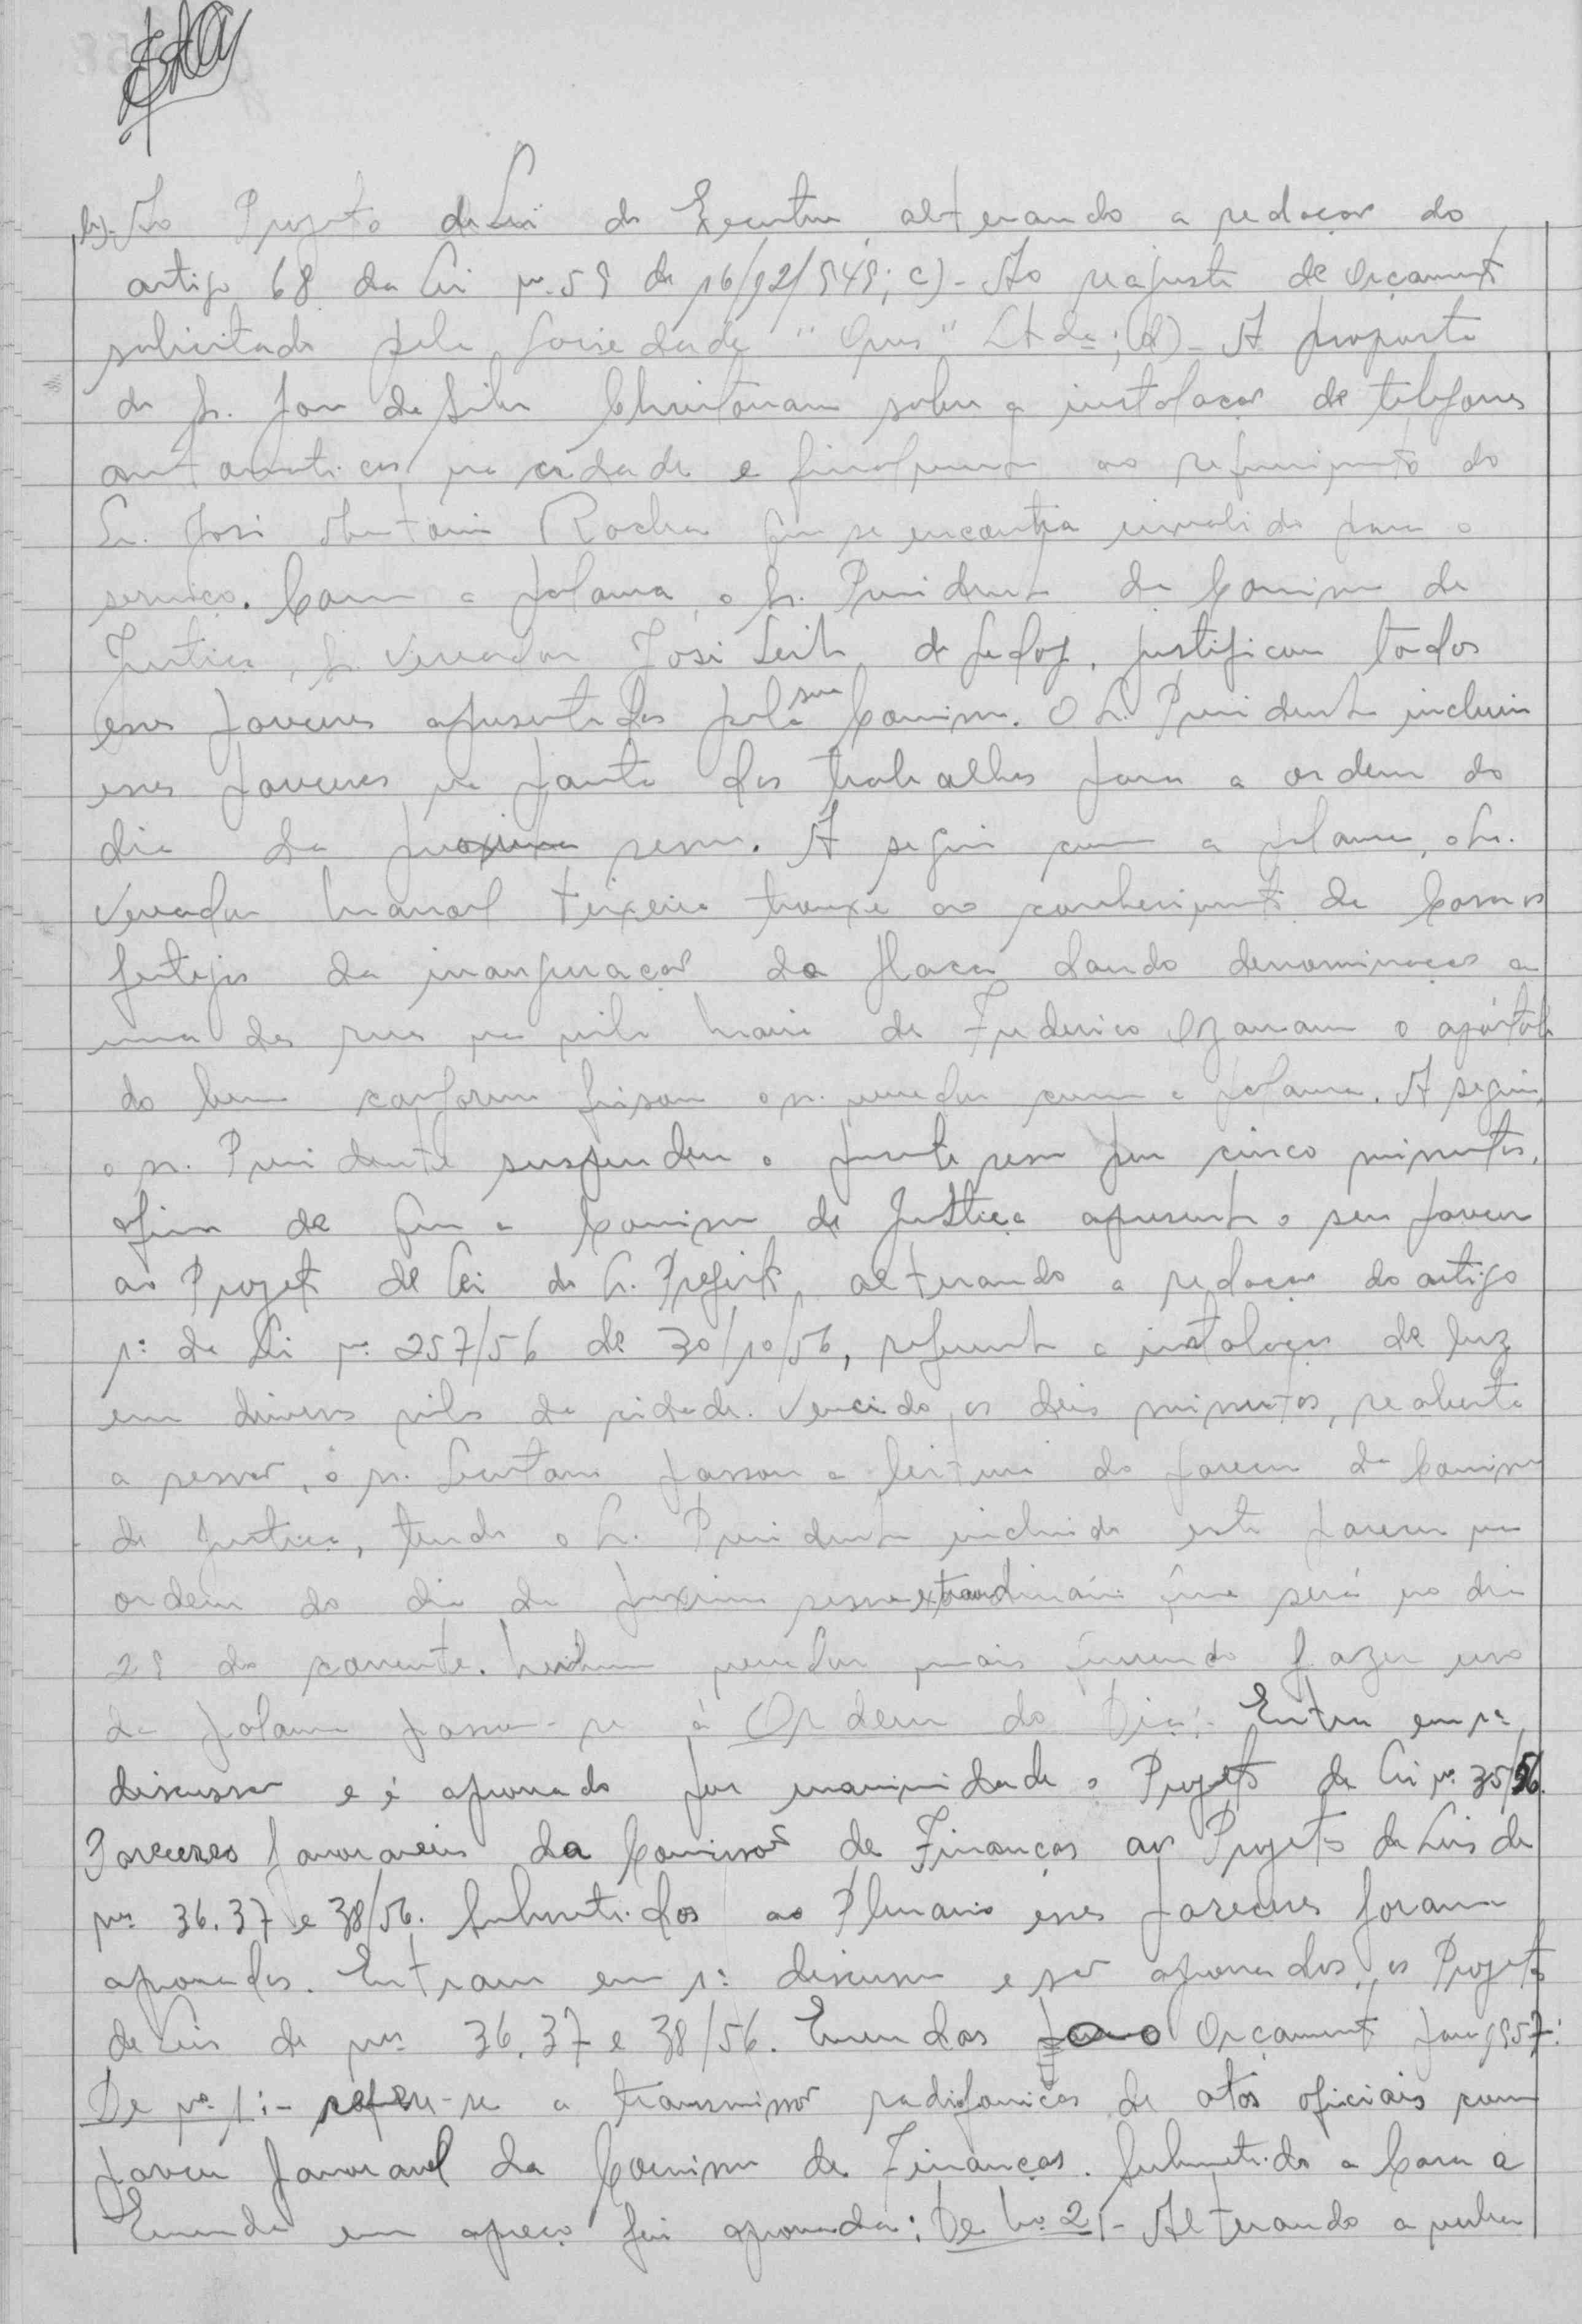 b)- Ao Projeto de Lei do Executivo, alterando a redação do
artigo 68 da Lei nº 59 de 16/12/949; c)- Ao reajuste de orçamento
solicitado pela Sociedade "Opus" Ltda; (d)- A proposta
do Sr. da Silva sobre a instalação de telefones
automaticos na cidade e finalmente ao requerimento do
Sr. José Antonio Rocha que se encontra invalido para o
serviço. Com a palavra, o Sr. Presidente da Comissão de
Justiça, Sr. Vereador José Leite de Godoy, justificou todos
esses pareceres apresentados pela sua Comissão. O Sr. Presidente incluiu
esses pareceres na pauta dos trabalhos para a ordem do
dia da proxima sessão. A seguir com a palavra, o Sr.
Vereador Manoel Teixeira trouxe ao conhecimento da Casa os
festejos da inauguração da placa dando denominação a
uma das ruas na vila Maria de Frederico Ozanam o apóstolo
do bem conforme frisou o sr. vereador com a palavra. A seguir,
o sr. Presidente suspendeu a presente sessão por cinco minutos,
afim de que a Comissão de Justiça apresente o seu parecer
ao Projeto de Lei do Sr. Prefeito, alterando a redação do artigo
1º da Lei nº 257/56 de 30/10/56, referente a instalação de luz
em diversas vilas da cidade. Vencido, os dois minutos, reaberta
a sessão, o sr. Secretario passou a leitura do parecer da Comissão
de Justiça, tendo o Sr. Presidente incluido este parecer na
ordem do dia da proxima sessão extraordinária que será no dia
29 do corrente. Nenhum vereador mais querendo fazer uso
da palavra passou-se á Ordem do Dia:- Entra em 1ª
discussão e é aprovado por unanimidade o Projeto de Lei nº 35/56.
Pareceres favoraveis da Comissão de Finanças aos Projetos de Leis de
nºs 36, 37 e 38/56. Submetidos ao Plenario esses pareceres foram
aprovados. Entram em 1ª discussão e são aprovados, os Projetos
de Leis de nºs 36, 37 e 38/56. Emendas ao Orçamento para 1957:
De nº 1:- refere-se a transmissão radiofonicas de atos oficiais com
parecer favoravel da Comissão de Finanças. Submetida a Casa a
Emenda em apreço foi aprovada; De Nº 2:- Alterando a verba